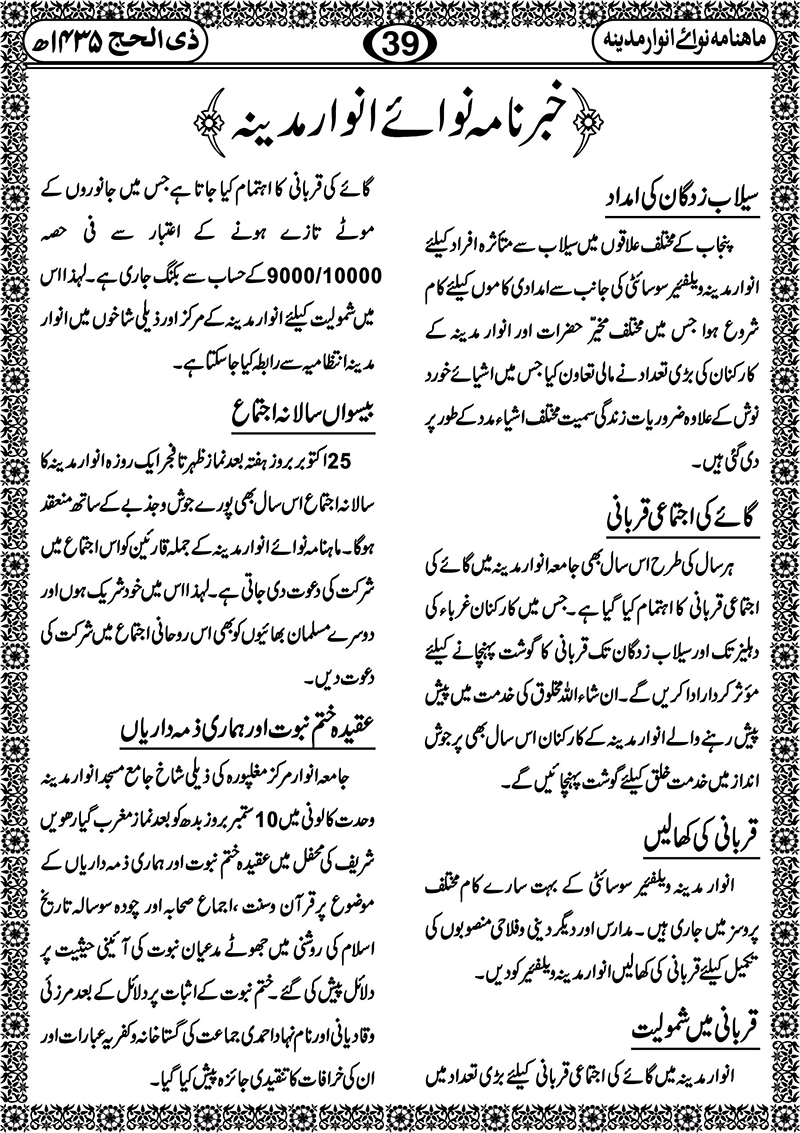 ماہنامہ نوائے انوار مدینہ
39
ذی الحج ۱۴۳۵ھ
خبرنامہ نوائے انوار مدینہ
سیلاب زدگان کی امداد
پنجاب کے مختلف علاقوں میں سیلاب سے متأثرہ افراد کیلئے
انوار مدینہ ویلفیئر سوسائٹی کی جانب سے امدادی کاموں کیلئے کام
شروع ہوا جس میں مختلف مخیّر حضرات اور انوار مدینہ کے
کارکنان کی بڑی تعداد نے مالی تعاون کیا جس میں اشیائے خورد
نوش کے علاوہ ضروریات زندگی سمیت مختلف اشیاء مدد کے طور پر
دی گئی ہیں۔
گائے کی اجتماعی قربانی
ہر سال کی طرح اس سال بھی جامعہ انوار مدینہ میں گائے کی
اجتماعی قربانی کا اہتمام کیا گیا ہے۔ جس میں کارکنان غرباء کی
دہلیز تک اور سیلاب زدگان تک قربانی کا گوشت پہنچانے کیلئے
مؤثر کردار ادا کریں گے۔ ان شاء اللہ مخلوق کی خدمت میں پیش
پیش رہنے والے انوار مدینہ کے کارکنان اس سال بھی پرجوش
انداز میں خدمت خلق کیلئے گوشت پہنچائیں گے۔
قربانی کی کھالیں
انوار مدینہ ویلفیئر سوسائٹی کے بہت سارے کام مختلف
پروسز میں جاری ہیں۔ مدارس اور دیگر دینی و فلاحی منصوبوں کی
تکمیل کیلئے قربانی کی کھالیں انوار مدینہ ویلفیئر کو دیں۔
قربانی میں شمولیت
انوار مدینہ میں گائے کی اجتماعی قربانی کیلئے بڑی تعداد میں
گائے کی قربانی کا اہتمام کیا جاتا ہے جس میں جانوروں کے
موٹے تازے ہونے کے اعتبار سے فی حصہ
9000/10000 کے حساب سے بکنگ جاری ہے۔ لہذا اس
میں شمولیت کیلئے انوار مدینہ کے مرکز اور ذیلی شاخوں میں انوار
مدینہ انتظامیہ سے رابطہ کیا جا سکتا ہے۔
بیسواں سالانہ اجتماع
25 اکتوبر بروز ہفتہ بعد نماز ظہر تا فجر ایک روزہ انوار مدینہ کا
سالانہ اجتماع اس سال بھی پورے جوش و جذبے کے ساتھ منعقد
ہوگا۔ ماہنامہ نوائے انوار مدینہ کے جملہ قارئین کو اس اجتماع میں
شرکت کی دعوت دی جاتی ہے۔ لہذا اس میں خود شریک ہوں اور
دوسرے مسلمان بھائیوں کو بھی اس روحانی اجتماع میں شرکت کی
دعوت دیں۔
عقیدہ ختم نبوت اور ہماری ذمہ داریاں
جامعہ انوار مرکز مغلپورہ کی ذیلی شاخ جامع مسجد انوار مدینہ
وحدت کالونی میں 10 ستمبر بروز بدھ کو بعد نماز مغرب گیارھویں
شریف کی محفل میں عقیدہ ختم نبوت اور ہماری ذمہ داریاں کے
موضوع پر قرآن و سنت، اجماع صحابہ اور چودہ سو سالہ تاریخ
اسلام کی روشنی میں جھوٹے مدعیان نبوت کی آئینی حیثیت پر
دلائل پیش کی گئے۔ ختم نبوت کے اثبات پر دلائل کے بعد مرزئی
و قادیانی اور نام نہاد احمدی جماعت کی گستاخانہ و کفریہ عبارات اور
ان کی خرافات کا تنقیدی جائزہ پیش کیا گیا۔